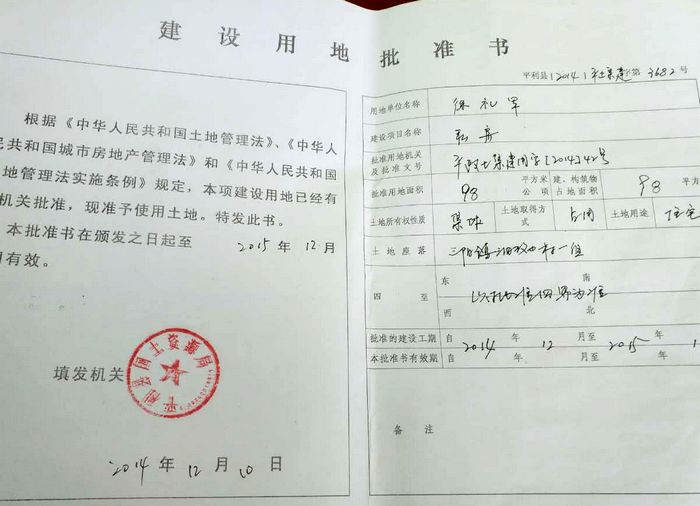 建设用地批准书
根据《中华人民共和国土地管理法》、《中华人
民共和国城市房地产管理法》和《中华人民共和国
地管理法实施条例》规定，本项建设用地已经有
机关批准，现准予使用土地。特发此书。
本批准书在颁发之日起至 2015 年 12 月
有效。
填发机关
平利县国土资源局
2014 年 12 月 10 日
平利县〔2014〕平土集建字第3682号
用地单位名称 徐礼军
建设项目名称 私房
批准用地机关
及批准文号 土集建[2014]42号
批准用地面积 98 平方米 公顷 建、构筑物占地面积 98 平方
土地所有权性质 集体 土地取得方式 占用 土地用途 住宅
土地座落 三阳镇 村一组
四至 东 南 西 北
以 四界为准
批准的建设工期 自 年 月至 年
本批准书有效期 自 2014 年 12 月至 2015 年 1
备注